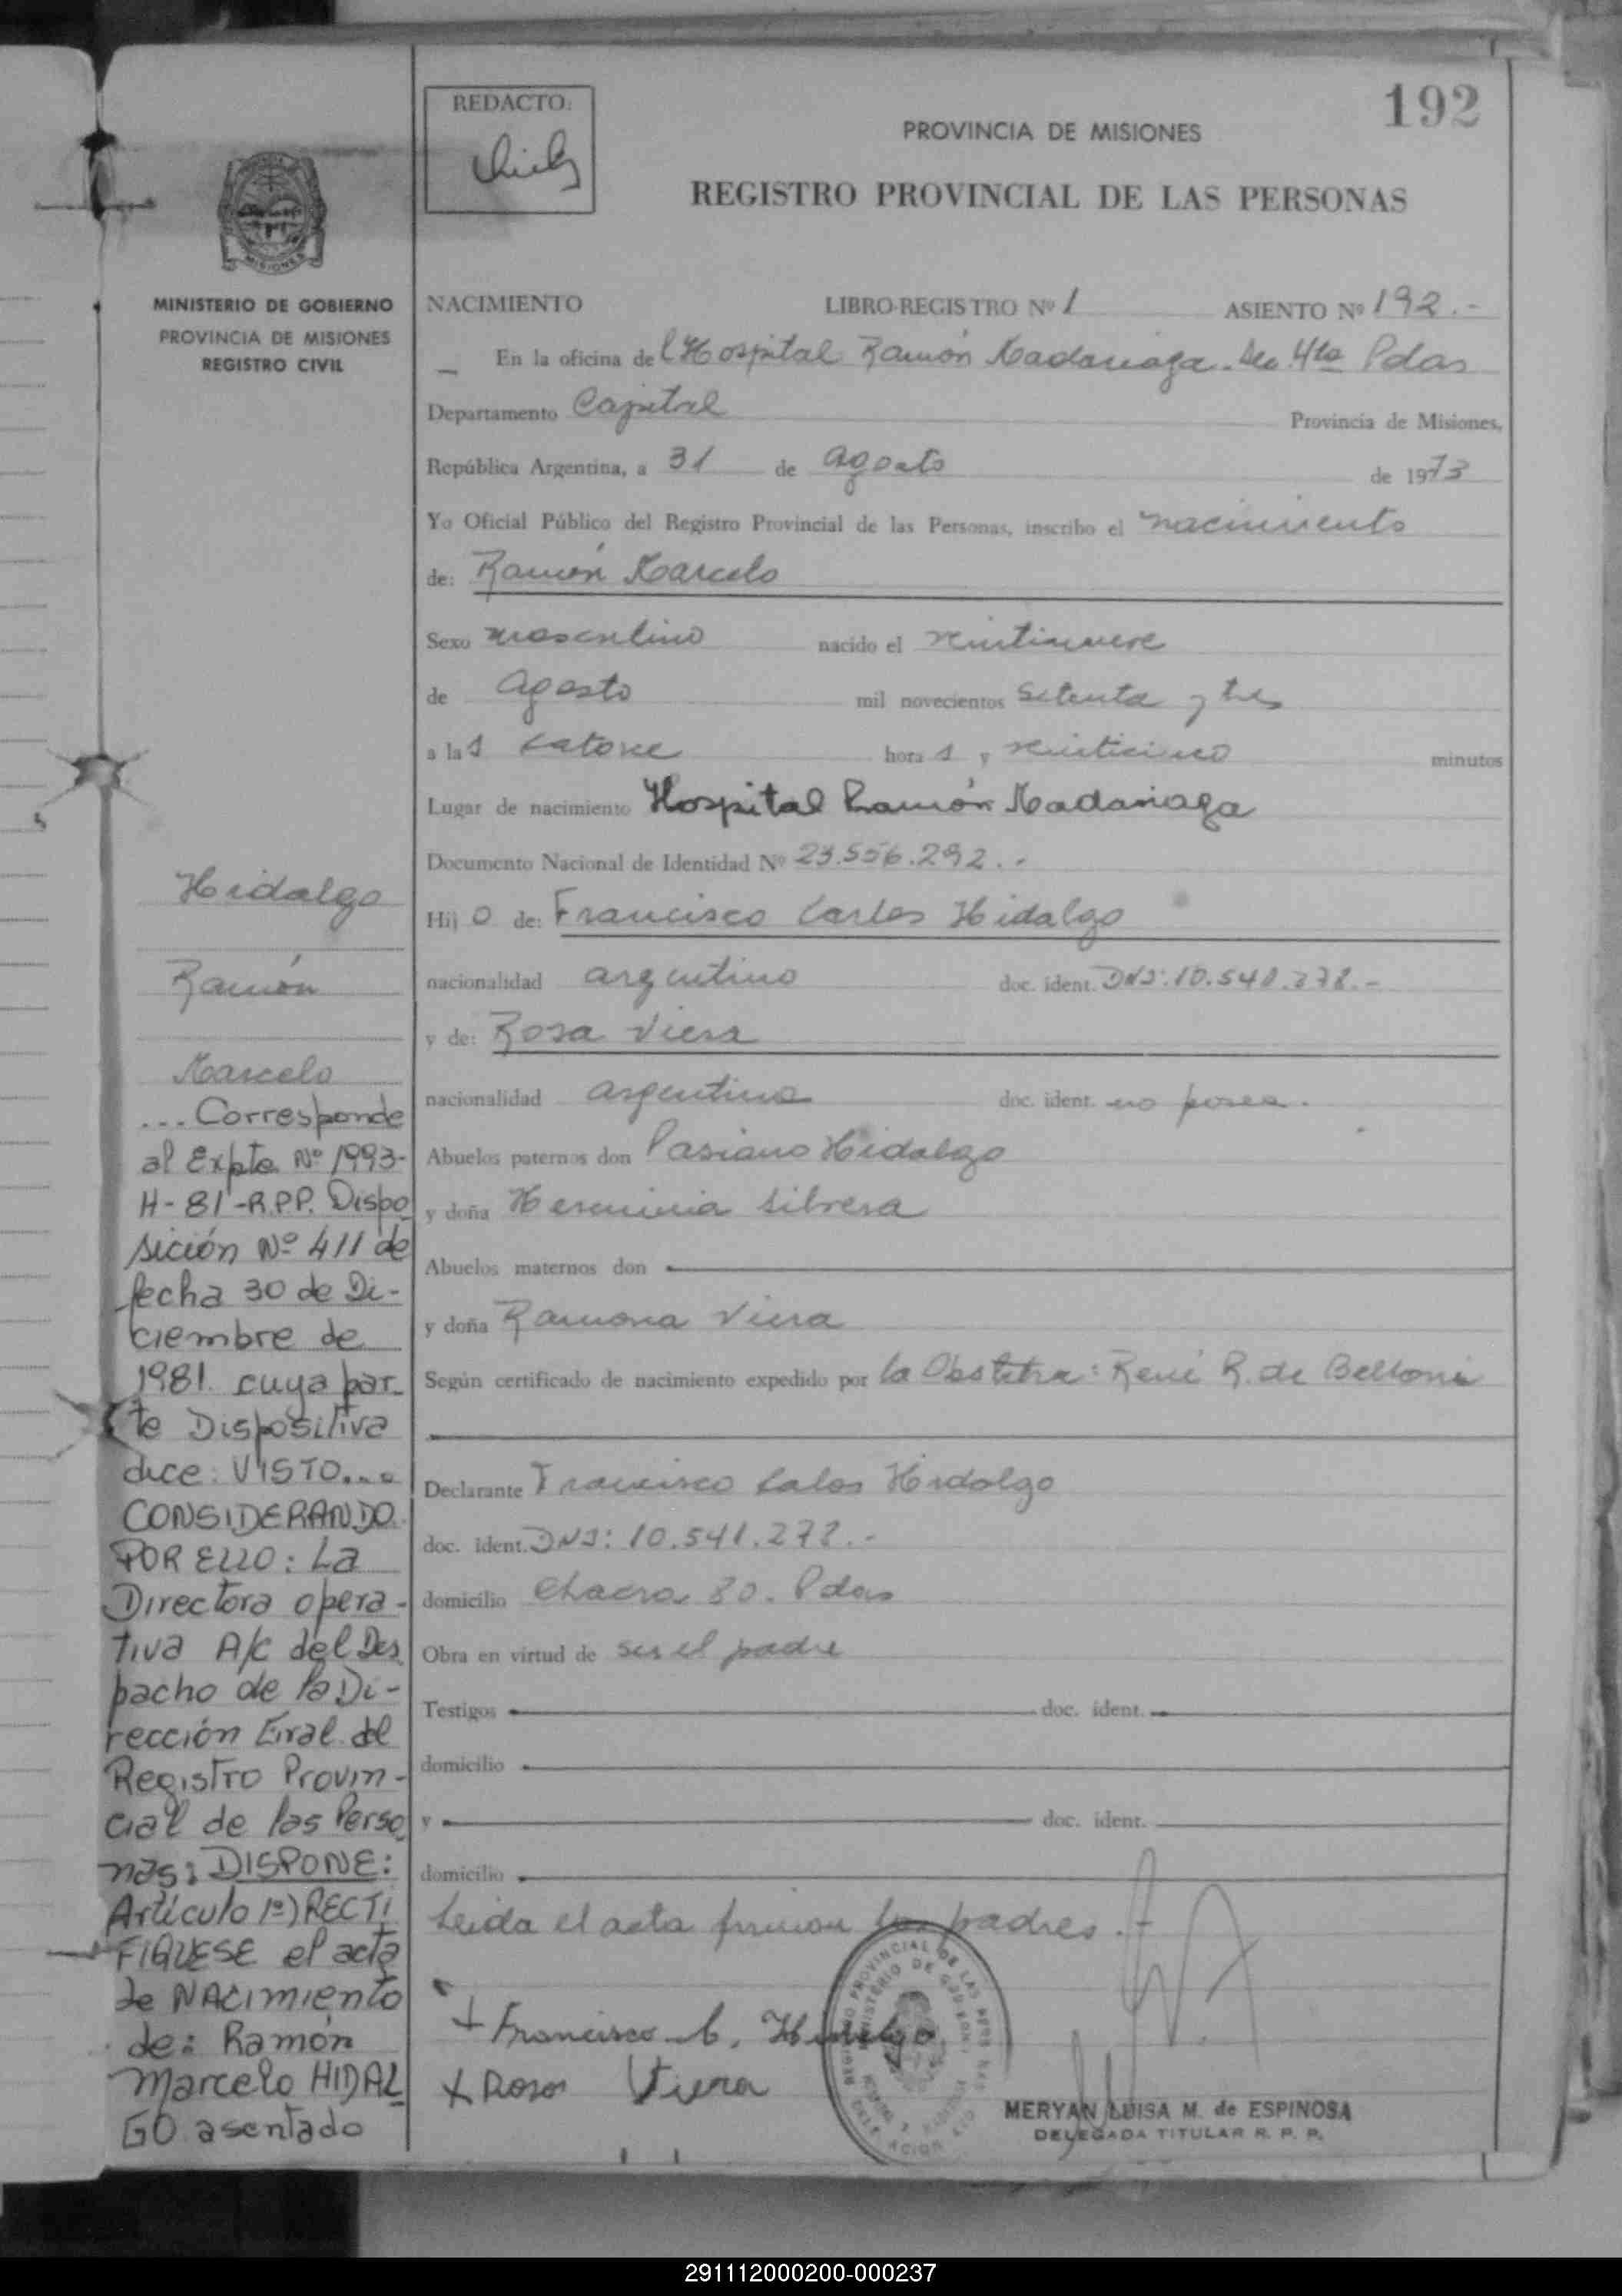 192
REDACTO:
PROVINCIA DE MISIONES
REGISTRO PROVINCIAL DE LAS PERSONAS
MISIONES
MINISTERIO DE GOBIERNO
PROVINCIA DE MISIONES
REGISTRO CIVIL
NACIMIENTO LIBRO-REGISTRO Nº 1 ASIENTO Nº 192.-
En la oficina del Hospital Ramón Madariaga. Sec. 4ta Pdas
Departamento Capital Provincia de Misiones,
República Argentina, a 31 de agosto de 1973
Yo Oficial Público del Registro Provincial de las Personas, inscribo el nacimiento
de: Ramón Marcelo
Sexo masculino nacido el veintinueve
de agosto mil novecientos setenta y tres
a las catorce horas y veinticinco minutos
Lugar de nacimiento Hospital Ramón Madariaga
Documento Nacional de Identidad Nº 23.556.292.-
Hijo de: Francisco Carlos Hidalgo
nacionalidad argentino doc. ident. DNI: 10.541.278.-
y de: Rosa Viera
nacionalidad argentina doc. ident. no posee.
Abuelos paternos don Pasiano Hidalgo
y doña Herminia Silvera
Abuelos maternos don
y doña Ramona Viera
Según certificado de nacimiento expedido por la Obstetra: René R. de Belloni
Declarante Francisco Calos Hidalgo
doc. ident. DNI: 10.541.278.-
domicilio Chacra 30. Pdas
Obra en virtud de ser el padre
Testigos doc. ident.
domicilio
y doc. ident.
domicilio
Leida el acta firman los padres.-
+ Francisco C. Hidalgo
x Rosa Viera
REGISTRO PROVINCIAL DE LAS PERSONAS
MINISTERIO DE GOBIERNO
MERYAN LUISA M. de ESPINOSA
DELEGADA TITULAR R. P. P.
Hidalgo
Ramón
Marcelo
... Corresponde
al Expte Nº 1993-
H-81-R.P.P. Dispo
sición Nº 411 de
fecha 30 de Di-
ciembre de
1981. cuya par-
te Dispositiva
dice: VISTO...
CONSIDERANDO.
POR ELLO: La
Directora opera-
tiva A/C del Des
pacho de la Di-
rección Gral. del
Registro Provin-
cial de las Perso
nas: DISPONE:
Artículo 1º) RECTI
FIQUESE el acta
de NACIMIENTO
de: Ramón
Marcelo HIDAL
GO asentado
291112000200-000237